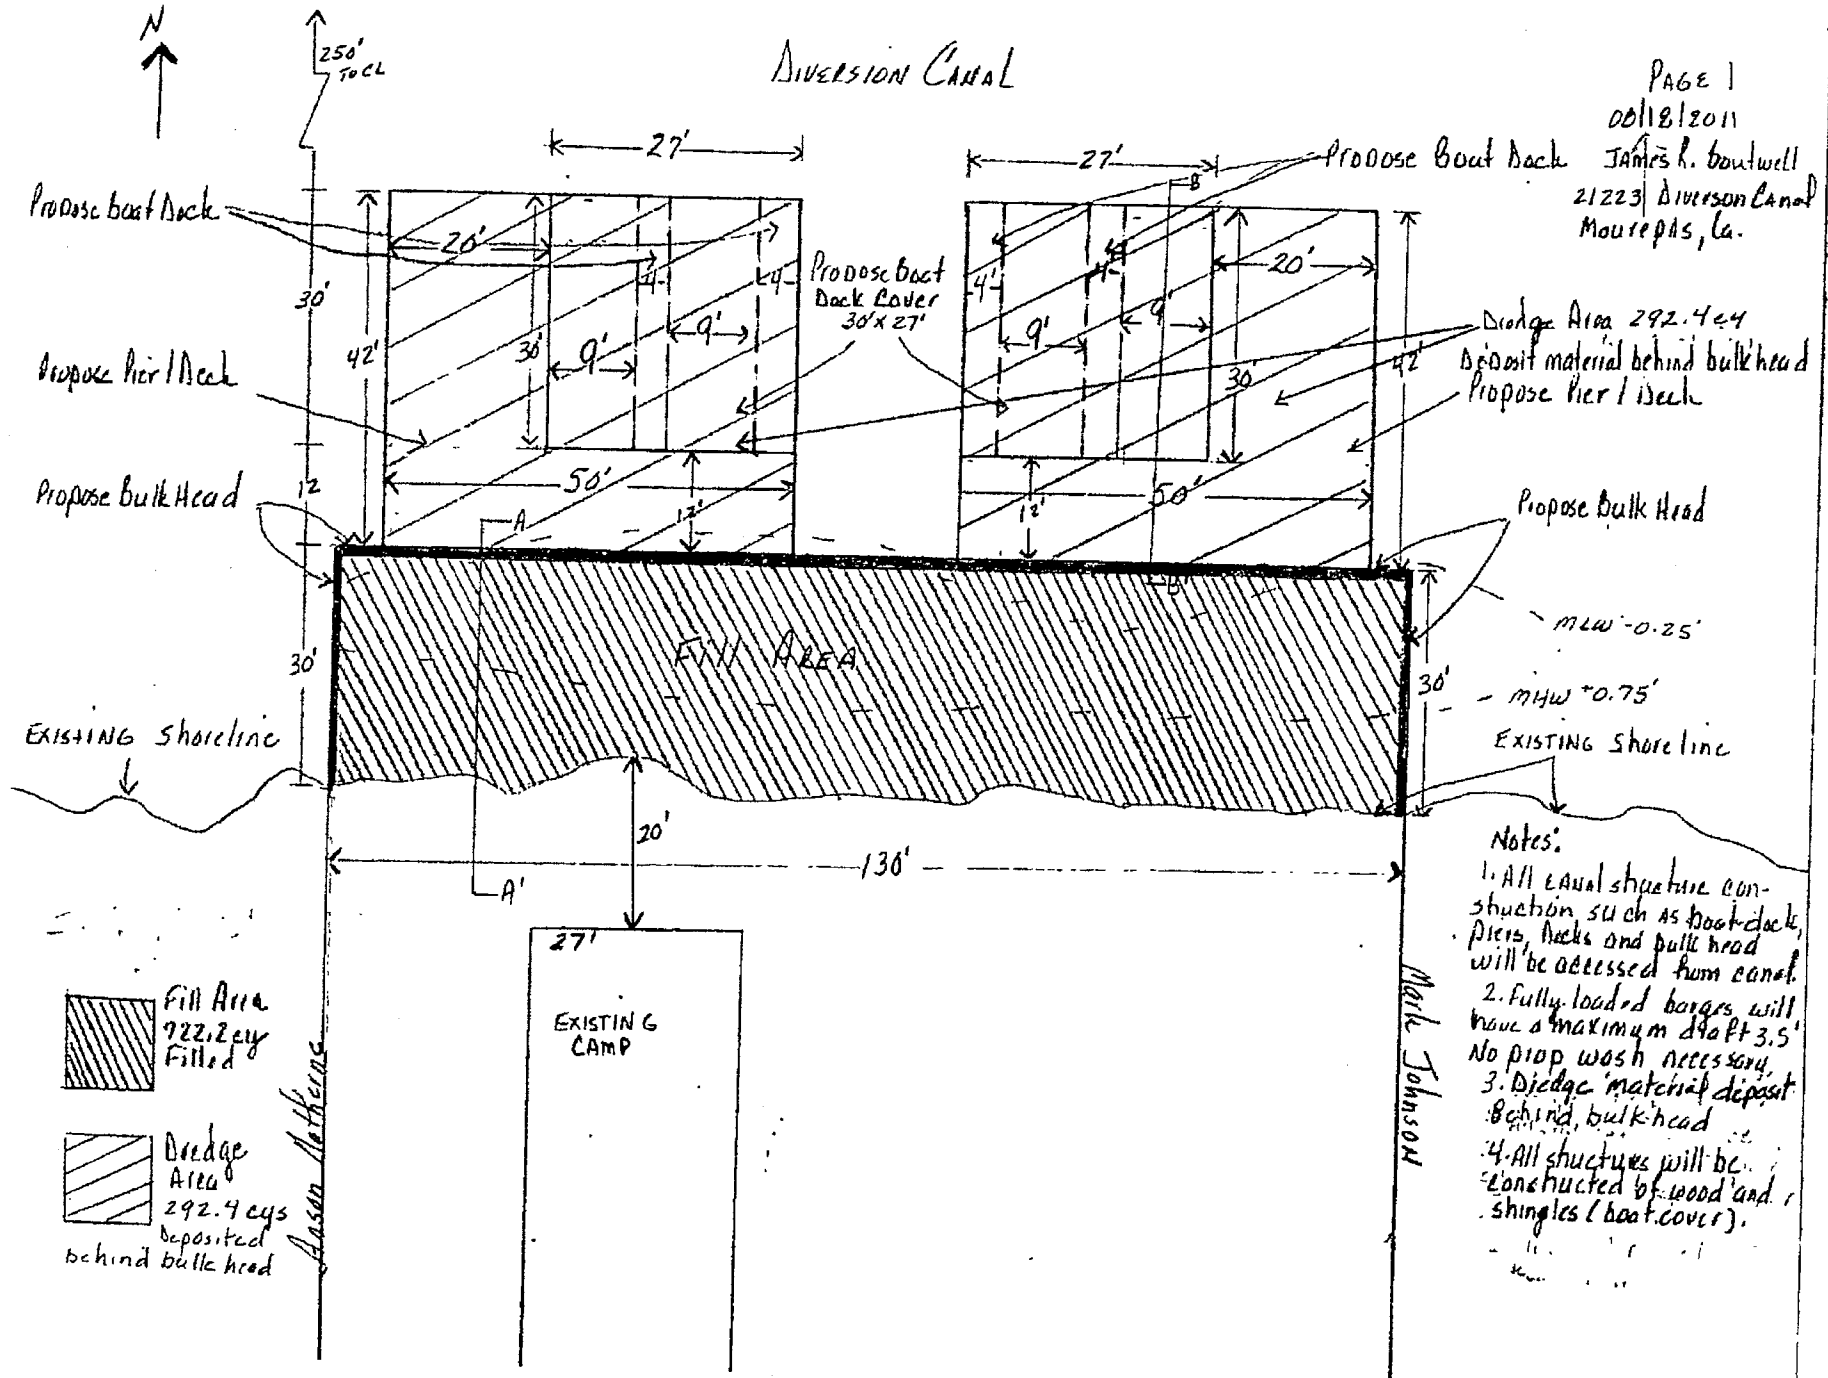 N
250'
TO CL
DIVERSION CANAL
PAGE 1
08/18/2011
JAMES R. Boutwell
21223 Diverson Canal
Mourepas, La.
27'
27'
Propose Boat Dock
Propose boat Dock
20'
4'
4'
Propose Boat
Dock Cover
30' x 27'
4'
4'
20'
30'
42'
30'
9'
9'
9'
9'
30'
42'
Dredge Area 292.4 cy
Deposit material behind bulkhead
Propose Pier / Deck
Propose Pier / Deck
Propose Bulk Head
12
50'
12'
12'
50'
Propose Bulk Head
A
B
B'
Fill AREA
30'
30'
MLW -0.25'
MHW +0.75'
EXISTING Shoreline
EXISTING Shoreline
20'
130'
A'
27'
EXISTING
CAMP
Fill Area
722.2 cy
Filled
Dredge
Area
292.4 cys
Deposited
behind bulk head
Mark Johnson
Notes:
1. All canal structure con-
struction such as boat dock,
piers, decks and bulk head
will be accessed from canal.
2. Fully loaded barges will
have a maximum draft 3.5'
No prop wash necessary.
3. Dredge material deposit
Behind bulkhead
4. All structures will be
constructed of wood and
shingles (boat cover).